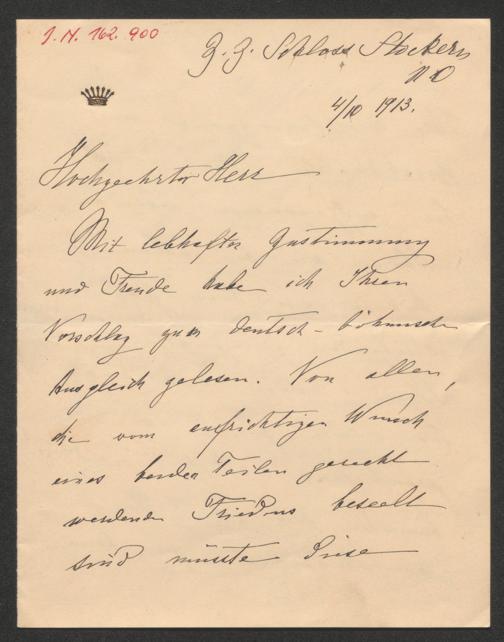 J.N. 162.900
Z. Z. Schloss Stockern
N Ö
4/10 1913.
Hochgeehrter Herr
Mit lebhafter Zustimmung
und Freude habe ich Ihren
Vorschlag zum deutsch-böhmischen
Ausgleich gelesen. Von allen,
die vom aufrichtigen Wunsch
eines beiden Teilen gerecht
werdenden Friedens beseelt
sind müsste diese